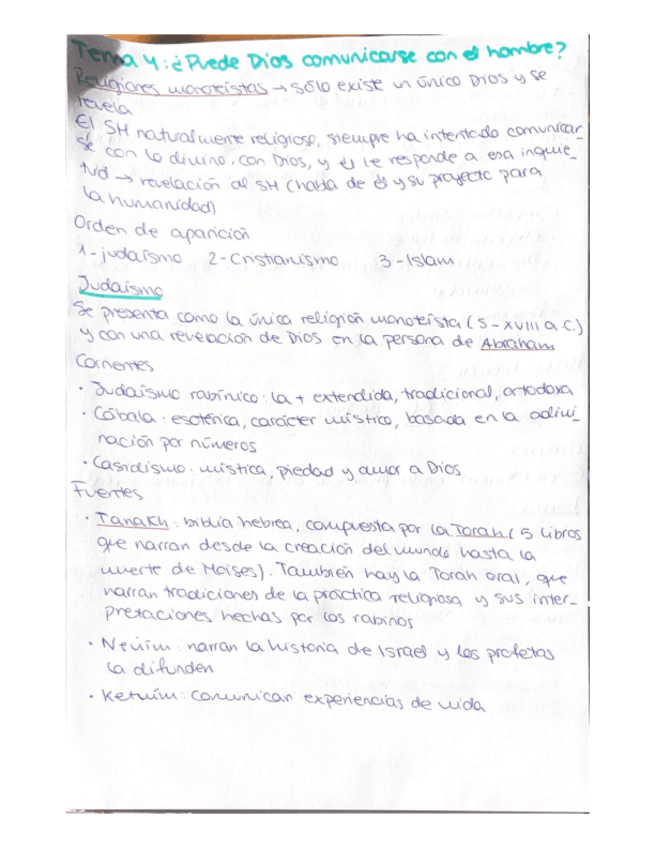 Tema 4: ¿Puede Dios comunicarse con el hombre?
Religiones monoteístas → sólo existe un único Dios y se
revela
El SH naturalmente religioso, siempre ha intentado comunicar
se con lo divino, con Dios, y él le responde a esa inquie_
tud → revelación al SH (habla de él y su proyecto para
la humanidad)
Orden de aparición
1-judaísmo 2-Cristianismo 3-Islam
Judaísmo
Se presenta como la única religión monoteísta (S-XVIII a C.)
y con una revelación de Dios en la persona de Abraham
Corrientes
· Judaísmo rabínico: la + extendida, tradicional, ortodoxa
· Cábala: esotérica, carácter místico, basada en la adivi_
nación por números
· Casidismo: mística, piedad y amor a Dios
Fuentes
· Tanakh: biblia hebrea, compuesta por la Torah (5 libros
que narran desde la creación del mundo hasta la
muerte de Moises). También hay la Torah oral, que
narran tradiciones de la práctica religiosa y sus inter_
pretaciones hechas por los rabinos
· Neviim: narran la historia de Israel y los profetas
la difunden
· Ketuim: comunican experiencias de vida